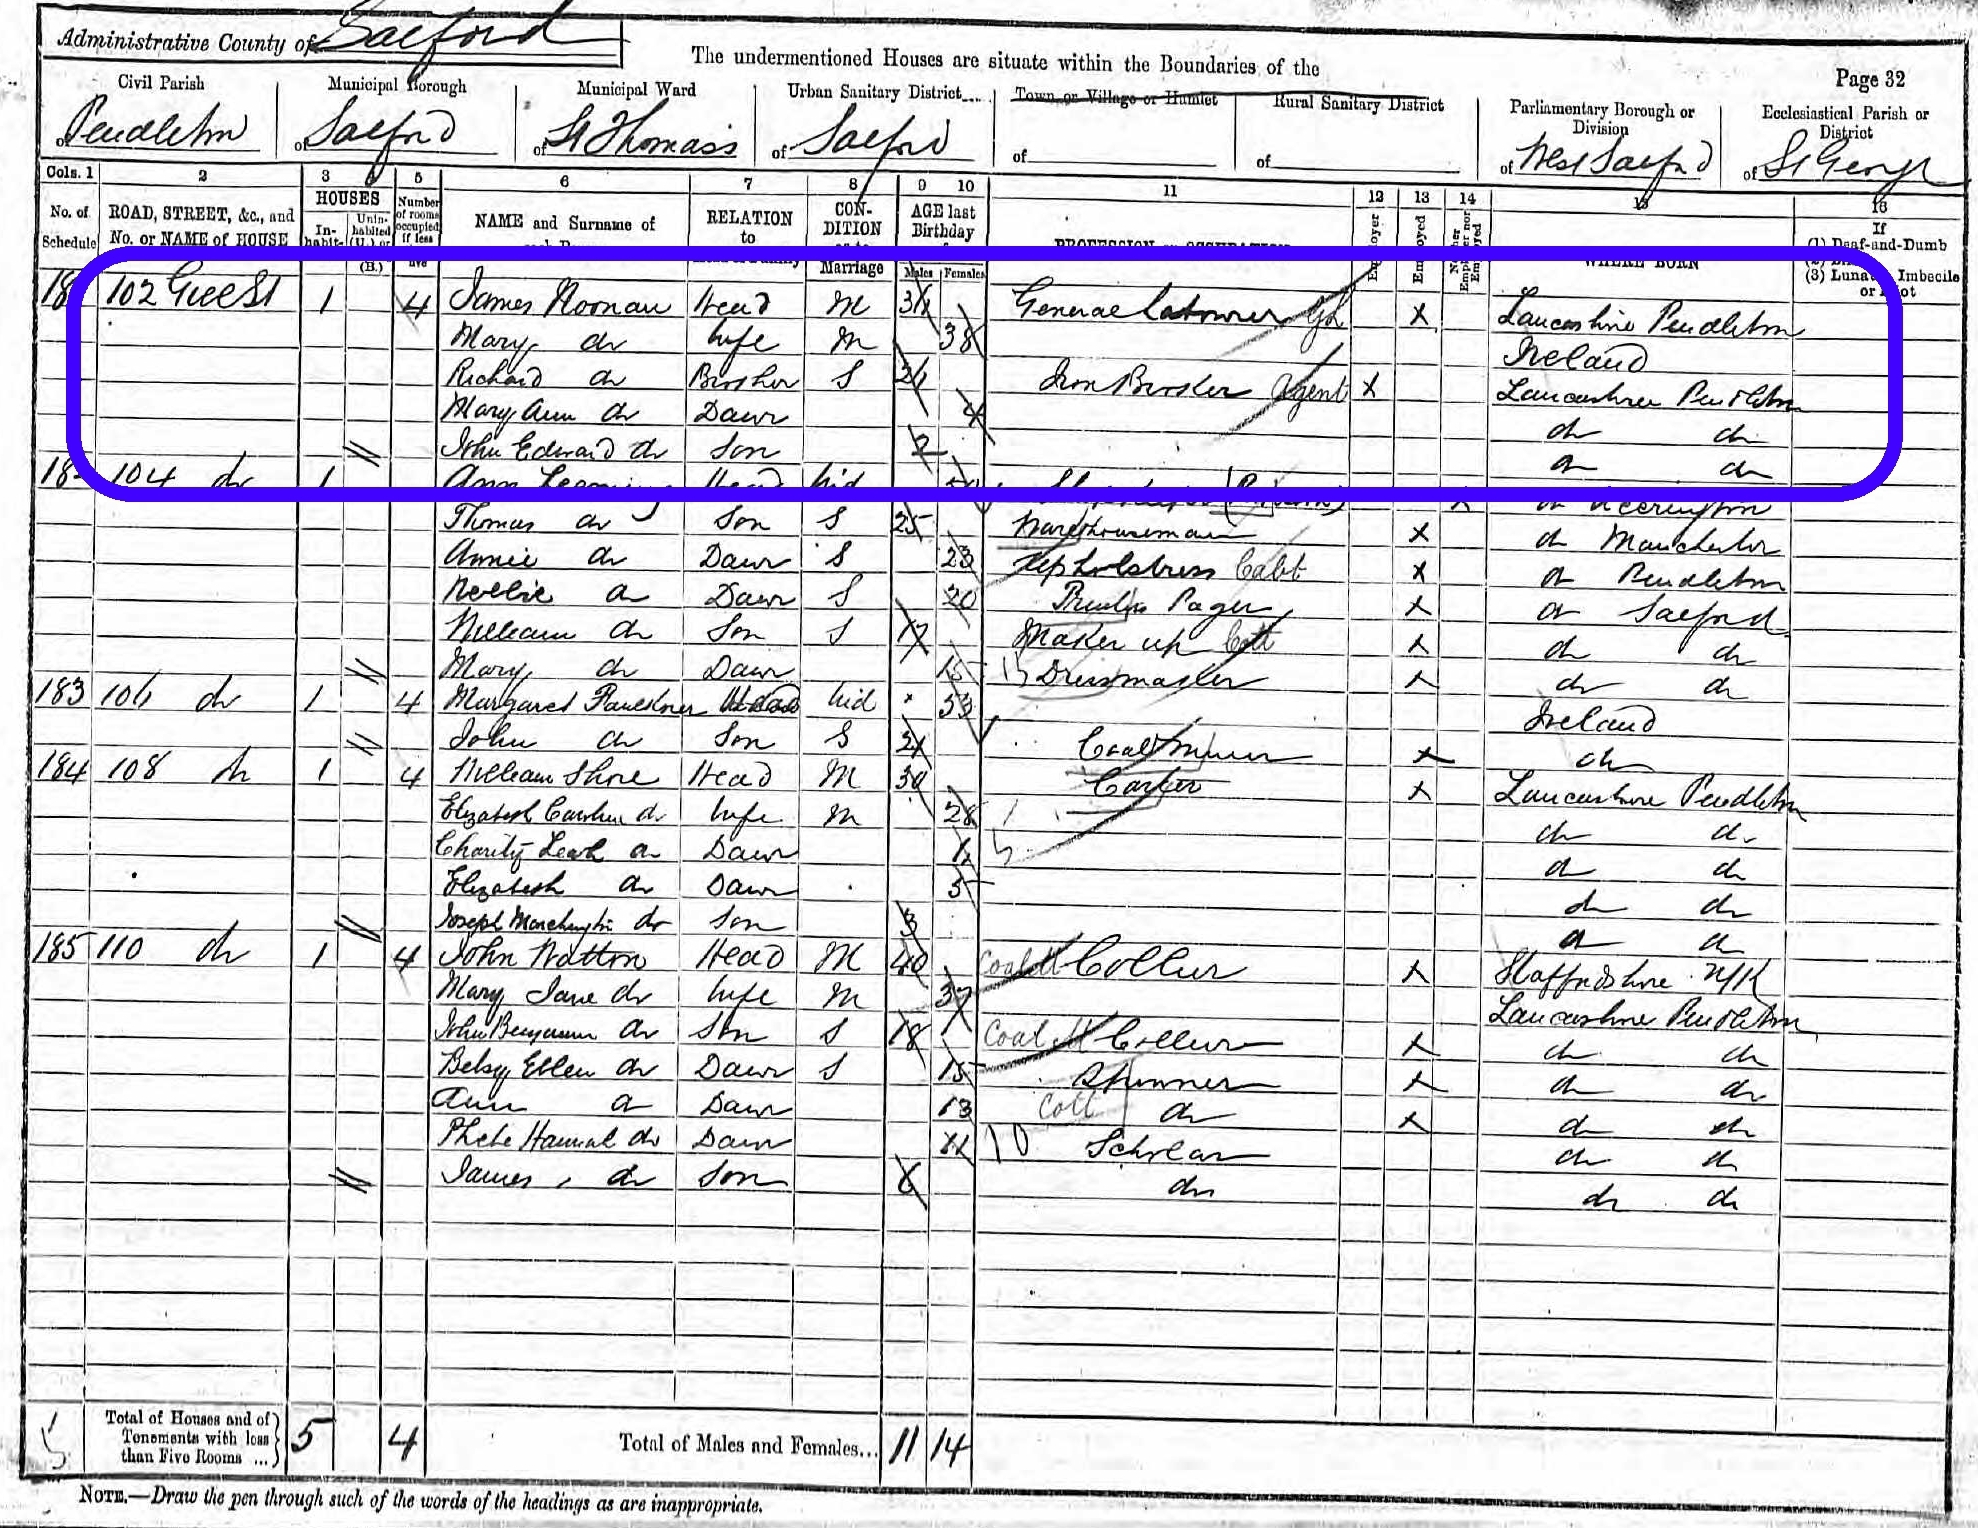 Administrative County of Salford
The undermentioned Houses are situate within the Boundaries of the
Page 32
Civil Parish of Pendleton
Municipal Borough of Salford
Municipal Ward of St Thomas's
Urban Sanitary District of Salford
Town or Village or Hamlet of
Rural Sanitary District of
Parliamentary Borough or Division of West Salford
Ecclesiastical Parish or District of St George
Cols. 1 2 3 5 6 7 8 9 10 11 12 13 14 16
No. of Schedule
ROAD, STREET, &c., and No. or NAME of HOUSE
HOUSES
In-habit-
Unin-habited (U.) or (B.)
Number of rooms occupied if less
NAME and Surname of
RELATION to
CON-DITION
Marriage
AGE last Birthday
Males Females
Employer
Employed
WHERE BORN
If
(1) Deaf-and-Dumb
(3) Lunatic, Imbecile or Idiot
102 Gee St 1 4 James Noonan Head M General Labourer X Lancashire Pendleton
Mary do Wife M 38 Ireland
Richard do Brother S Iron Broker Agent X Lancashire Pendleton
Mary Ann do Daur 4 do do
John Edward do Son 2 do do
104 do 1 Ann Head Wid X do Accrington
Thomas do Son S 25 Warehouseman X do Manchester
Annie do Daur S 23 Upholstress X do Pendleton
Nellie do Daur S 20 X do Salford
William do Son S 17 Maker up Cott X do do
Mary do Daur 15 Dressmaker X do do
183 106 do 1 4 Margaret Faulkner Head Wid 53 Ireland
John do Son S 21 Coal Miner X do
184 108 do 1 4 William Shore Head M 30 Carter X Lancashire Pendleton
Elizabeth Caroline do Wife M 28 do do
Charity Leah do Daur do do
Elizabeth do Daur 5 do do
Joseph do Son 3 do do
185 110 do 1 4 John Watton Head M 40 Collier X Staffordshire N/K
Mary Jane do Wife M 37 Lancashire Pendleton
John Benjamin do Son S 18 Coal Collier X do do
Betsy Ellen do Daur S 15 Spinner X do do
Ann do Daur 13 Cott do X do do
Phebe Hannah do Daur 11 10 Scholar do do
James do Son 6 do do do
Total of Houses and of Tenements with less than Five Rooms ...} 5 4
Total of Males and Females... 11 14
NOTE.—Draw the pen through such of the words of the headings as are inappropriate.